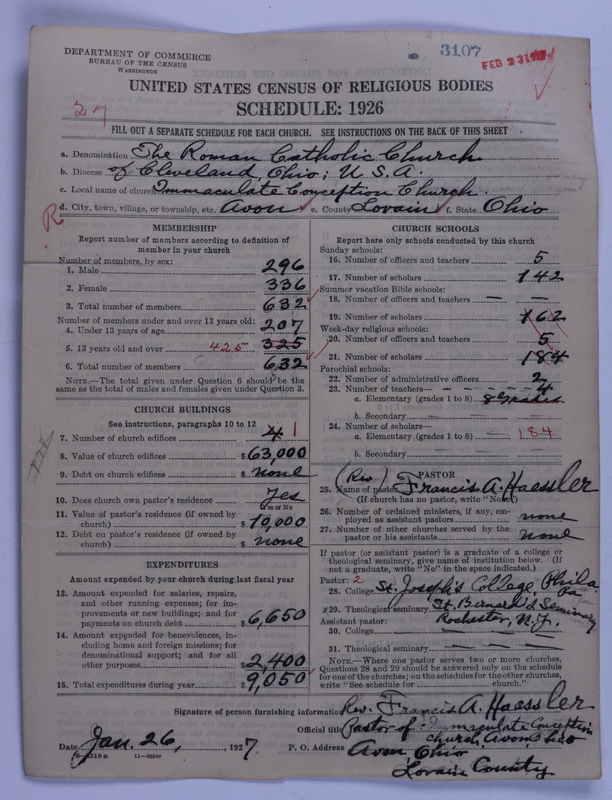 3107
FEB 23 1927
DEPARTMENT OF COMMERCE
BUREAU OF THE CENSUS
WASHINGTON
UNITED STATES CENSUS OF RELIGIOUS BODIES
SCHEDULE: 1926
27
FILL OUT A SEPARATE SCHEDULE FOR EACH CHURCH. SEE INSTRUCTIONS ON THE BACK OF THIS SHEET
a. Denomination The Roman Catholic Church
b. Diocese of Cleveland, Ohio; U.S.A.
c. Local name of church Immaculate Conception Church.
R
d. City, town, village, or township, etc. Avon e. County Lorain f. State Ohio
MEMBERSHIP
Report number of members according to definition of
member in your church
Number of members, by sex:
1. Male 296
2. Female 336
3. Total number of members 632
Number of members under and over 13 years old:
4. Under 13 years of age 207
5. 13 years old and over 425 325
6. Total number of members 632
NOTE.—The total given under Question 6 should be the
same as the total of males and females given under Question 3.
CHURCH BUILDINGS
See instructions, paragraphs 10 to 12
7. Number of church edifices 4 1
8. Value of church edifices $ 63,000
9. Debt on church edifices $ none
10. Does church own pastor's residence Yes
Yes or No
11. Value of pastor's residence (if owned by
church) $ 10,000
12. Debt on pastor's residence (if owned by
church) $ none
EXPENDITURES
Amount expended by your church during last fiscal year
13. Amount expended for salaries, repairs,
and other running expenses; for im-
provements or new buildings; and for
payments on church debt $ 6,650
14. Amount expended for benevolences, in-
cluding home and foreign missions; for
denominational support; and for all
other purposes $ 2,400
15. Total expenditures during year $ 9,050
CHURCH SCHOOLS
Report here only schools conducted by this church
Sunday schools:
16. Number of officers and teachers 5
17. Number of scholars 142
Summer vacation Bible schools:
18. Number of officers and teachers — —
19. Number of scholars 162
Week-day religious schools:
20. Number of officers and teachers 5
21. Number of scholars 184
Parochial schools:
22. Number of administrative officers 2
23. Number of teachers— 4
a. Elementary (grades 1 to 8) 8 grades
b. Secondary
24. Number of scholars—
a. Elementary (grades 1 to 8) 184
b. Secondary
PASTOR
25. Name of pastor (Rev) Francis A. Haessler
(If church has no pastor, write "None")
26. Number of ordained ministers, if any, em-
ployed as assistant pastors none
27. Number of other churches served by the
pastor or his assistants none
If pastor (or assistant pastor) is a graduate of a college or
theological seminary, give name of institution below. (If
not a graduate, write "No" in the space indicated.)
Pastor: 2
28. College St. Joseph's College, Phila. Pa
29. Theological seminary St. Bernard's Seminary
Rochester, N.Y.
Assistant pastor:
30. College
31. Theological seminary
NOTE.—Where one pastor serves two or more churches,
Questions 28 and 29 should be answered only on the schedule
for one of the churches; on the schedules for the other churches,
write "See schedule for church."
Signature of person furnishing information Rev. Francis A. Haessler
Official title Pastor of Immaculate Conception
church, Avon, Ohio
Date Jan. 26, 1927 P. O. Address Avon Ohio
Lorain County